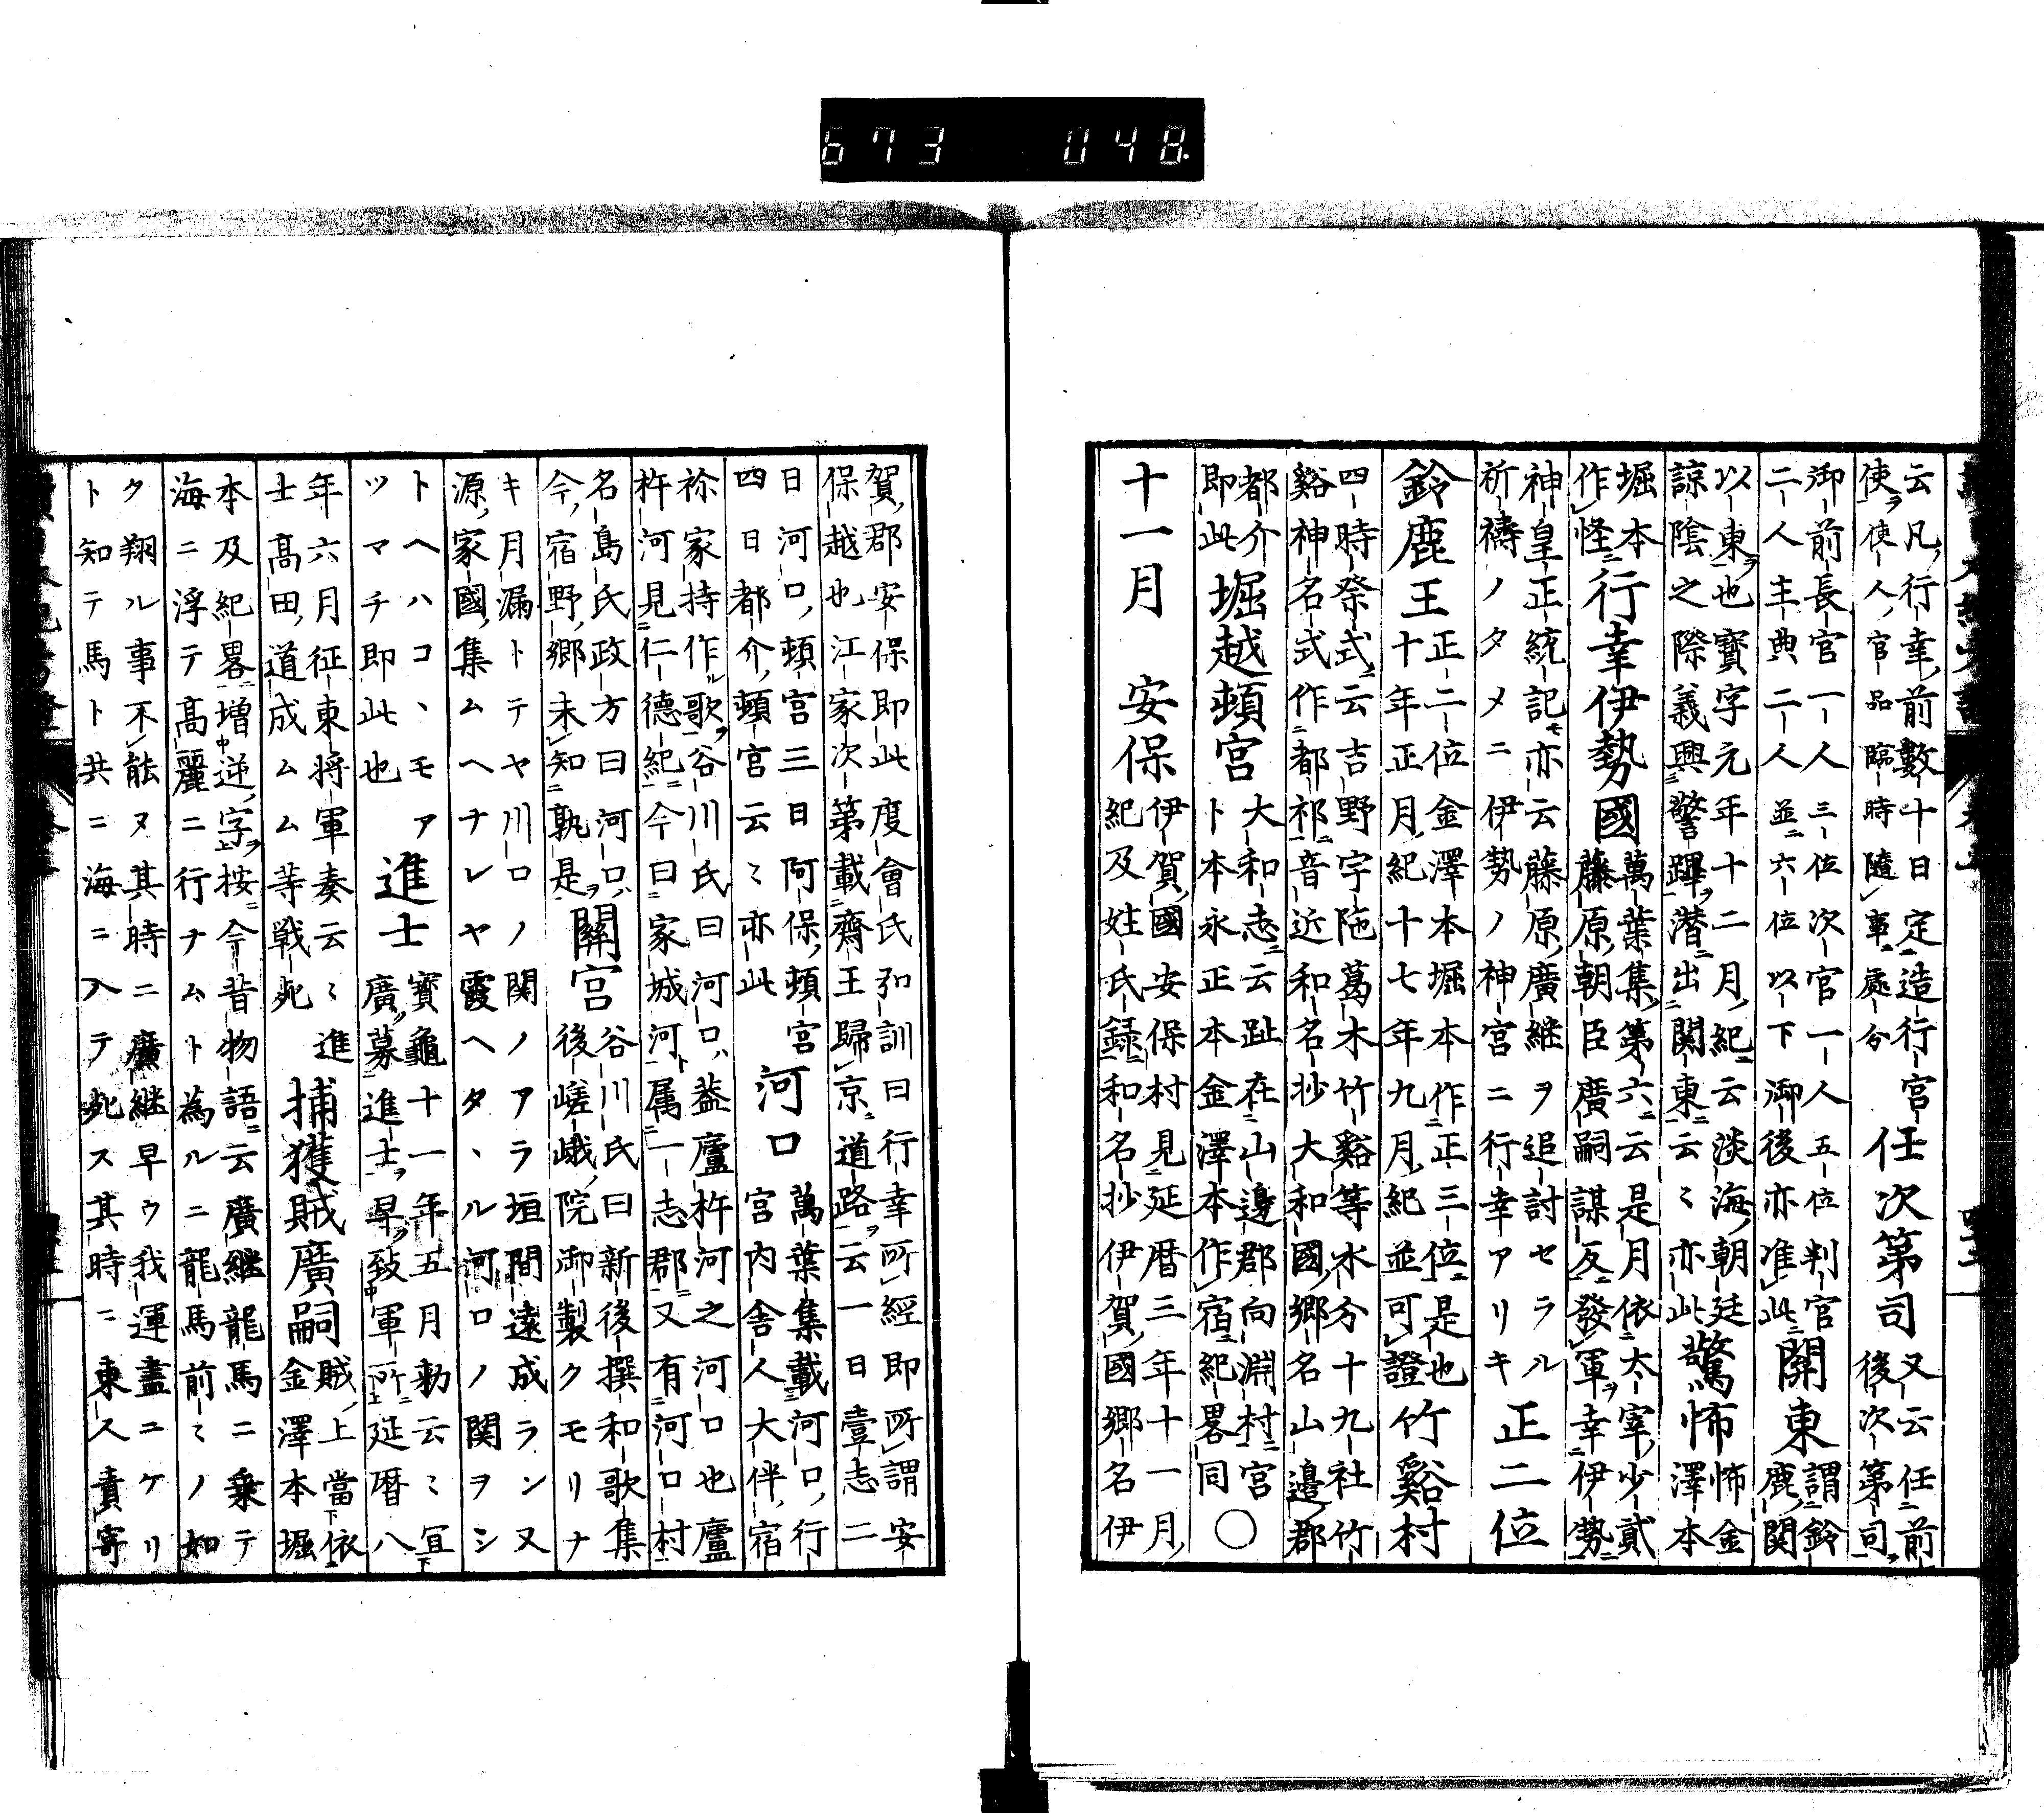 673 048.
云凡行幸前數十日定造行宮任次第司又云任前
使ヲ使人官品臨時隨事處分後次第司ヲ
御前長官一人三位次官一人五位判官
二人主典二人並六位以下御後亦准此關東謂鈴鹿関
以東ヲ也寳字元年十二月紀云淡海朝廷
諒陰之際義興警蹕ヲ潜出関東云〻亦此驚怖怖金澤本
堀本作怪行幸伊勢國萬葉集第六云是月依太宰少貳
藤原朝臣廣嗣謀反發軍ヲ幸伊勢
神皇正統記モ亦云藤原廣継ヲ追討セラル
祈禱ノタメニ伊勢ノ神宮ニ行幸アリキ正二位
鈴鹿王正二位金澤本堀本作正三位是也
十年正月紀十七年九月紀並可證竹谿村
四時祭式云吉野宇陁葛木竹谿等水分十九社竹
谿神名式作都祁音近和名抄大和國郷名山邊郡
都介即此堀越頓宮大和志云趾在山邊郡向淵村宮
ト本永正本金澤本作宿紀畧同〇
十一月安保伊賀國安保村見延暦三年十一月
紀及姓氏録和名抄伊賀國郷名伊
賀郡安保即此度會氏弘訓曰行幸所經即所謂安
保越也江家次第載齋王歸京道路ヲ云一日壹志二
日河口頓宮三日阿保頓宮河口萬葉集載河口行
四日都介頓宮云〻亦此宮内舎人大伴宿
祢家持作ル歌ヲ谷川氏曰河口ハ葢廬杵河之河口也廬
杵河見仁德紀今曰家城河ト属一志郡又有河口村
名島氏政方曰河口ハ關宮谷川氏曰新後撰和歌集
今宿野郷未知孰是ヲ後嵯峨院御製クモリナ
キ月漏トテヤ川口ノ関ノアラ垣間遠成ラン又
源家國集ムヘナレヤ霞ヘタヽル河口ノ関ヲシ
トヘハコヽモア進士寳龜十一年五月勅云〻宜
ツマチ即此也廣募進士ヲ早致軍所延暦八
年六月征東将軍奏云〻進捕獲賊廣嗣賊上當依
士髙田道成ムムム等戦死金澤本堀
本及紀畧増逆字ヲ按今昔物語云廣継龍馬ニ乗テ
海ニ浮テ高麗ニ行ナムト為ルニ龍馬前〻ノ如
ク翔ル事不能ヌ其時ニ廣継早ウ我運盡ニケリ
ト知テ馬ト共ニ海ニ入テ死ス其時ニ東